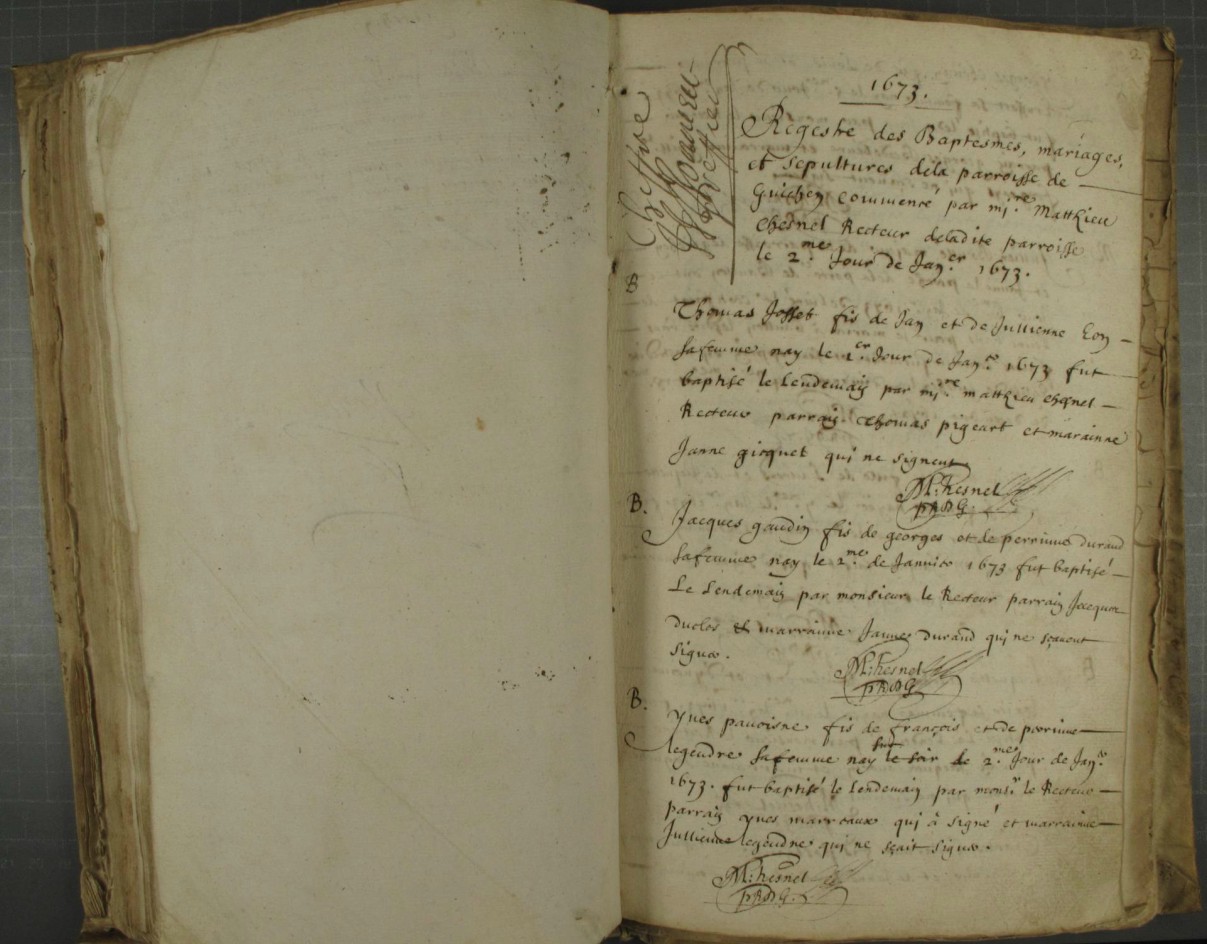 2
1673.
Regestre des Baptesmes, mariages,
et sepultures dela parroisse de
Guichen commencé par mire Matthieu
Chesnel Recteur deladite parroisse
le 2.me Jour de Janer 1673.
B
Thomas Josset fis de Jan et de Jullienne Eon
safemme nay le 1er Jour de Jane 1673 fut
baptisé le lendemain par mire matthieu chesnel
Recteur parrain Thomas pigeart et marainne
Janne gicquel qui ne signent
M: Chesnel
pRDG
B.
Jacques gaudin fis de georges et de perrinne durand
safemme nay le 2.me de Janvier 1673 fut baptisé
Le Lendemain par monsieur le Recteur parrain Jacques
duclos et marrainne Janne durand qui ne sçavent
signer.
M: Chesnel
pRDG
B.
Yves pavoisne fis de françois et de perrinne
legendre safemme nay sur le soir le 2.me Jour de Jane
1673. fut baptisé le lendemain par monsr le Recteur
parrain yves marreaux qui à signé et marrainne
Jullienne legendre qui ne sçait signer.
M: Chesnel
pRDG.